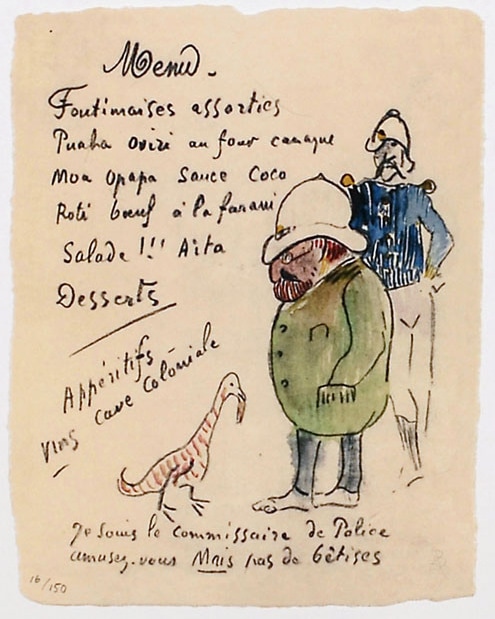 Menu.
Foutimaises assorties
Puaha oviri au four canaque
Moa Opapa Sauce Coco
Roti bœuf à la farani
Salade !!! Aita
Desserts
Appéritifs
Vins cave Coloniale
Je souis le Commissaire de Police
amusez-vous Mais pas de bêtises
16/150